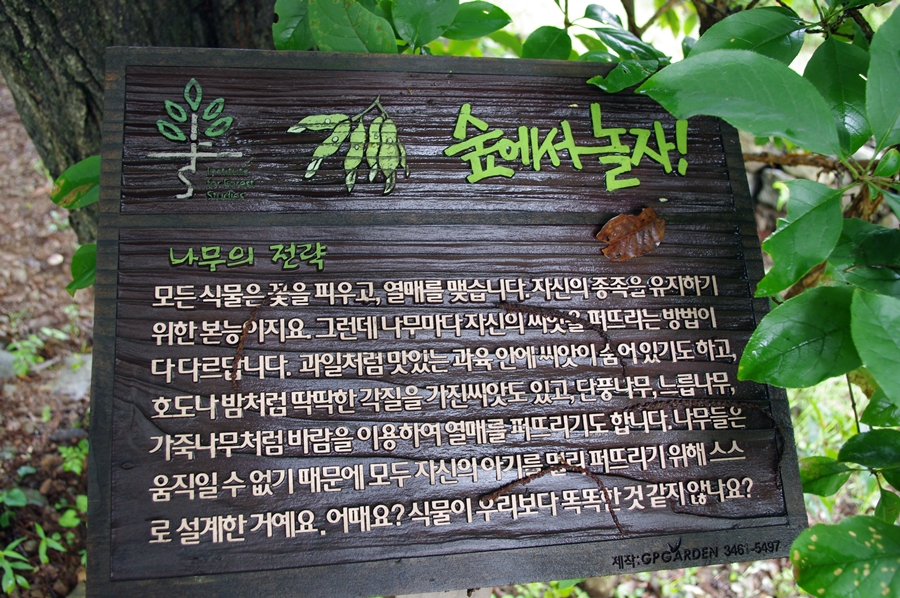 숲에서 놀자!
나무의 전략
모든 식물은 꽃을 피우고, 열매를 맺습니다. 자신의 종족을 유지하기
위한 본능이지요. 그런데 나무마다 자신의 씨앗을 퍼뜨리는 방법이
다 다르답니다. 과일처럼 맛있는 과육 안에 씨앗이 숨어 있기도 하고,
호도나 밤처럼 딱딱한 각질을 가진씨앗도 있고, 단풍나무, 느릅나무,
가죽나무처럼 바람을 이용하여 열매를 퍼뜨리기도 합니다. 나무들은
움직일 수 없기 때문에 모두 자신의 아기를 멀리 퍼뜨리기 위해 스스
로 설계한 거예요. 어때요? 식물이 우리보다 똑똑한 것 같지 않나요?
제작:GPGARDEN 3461-5497